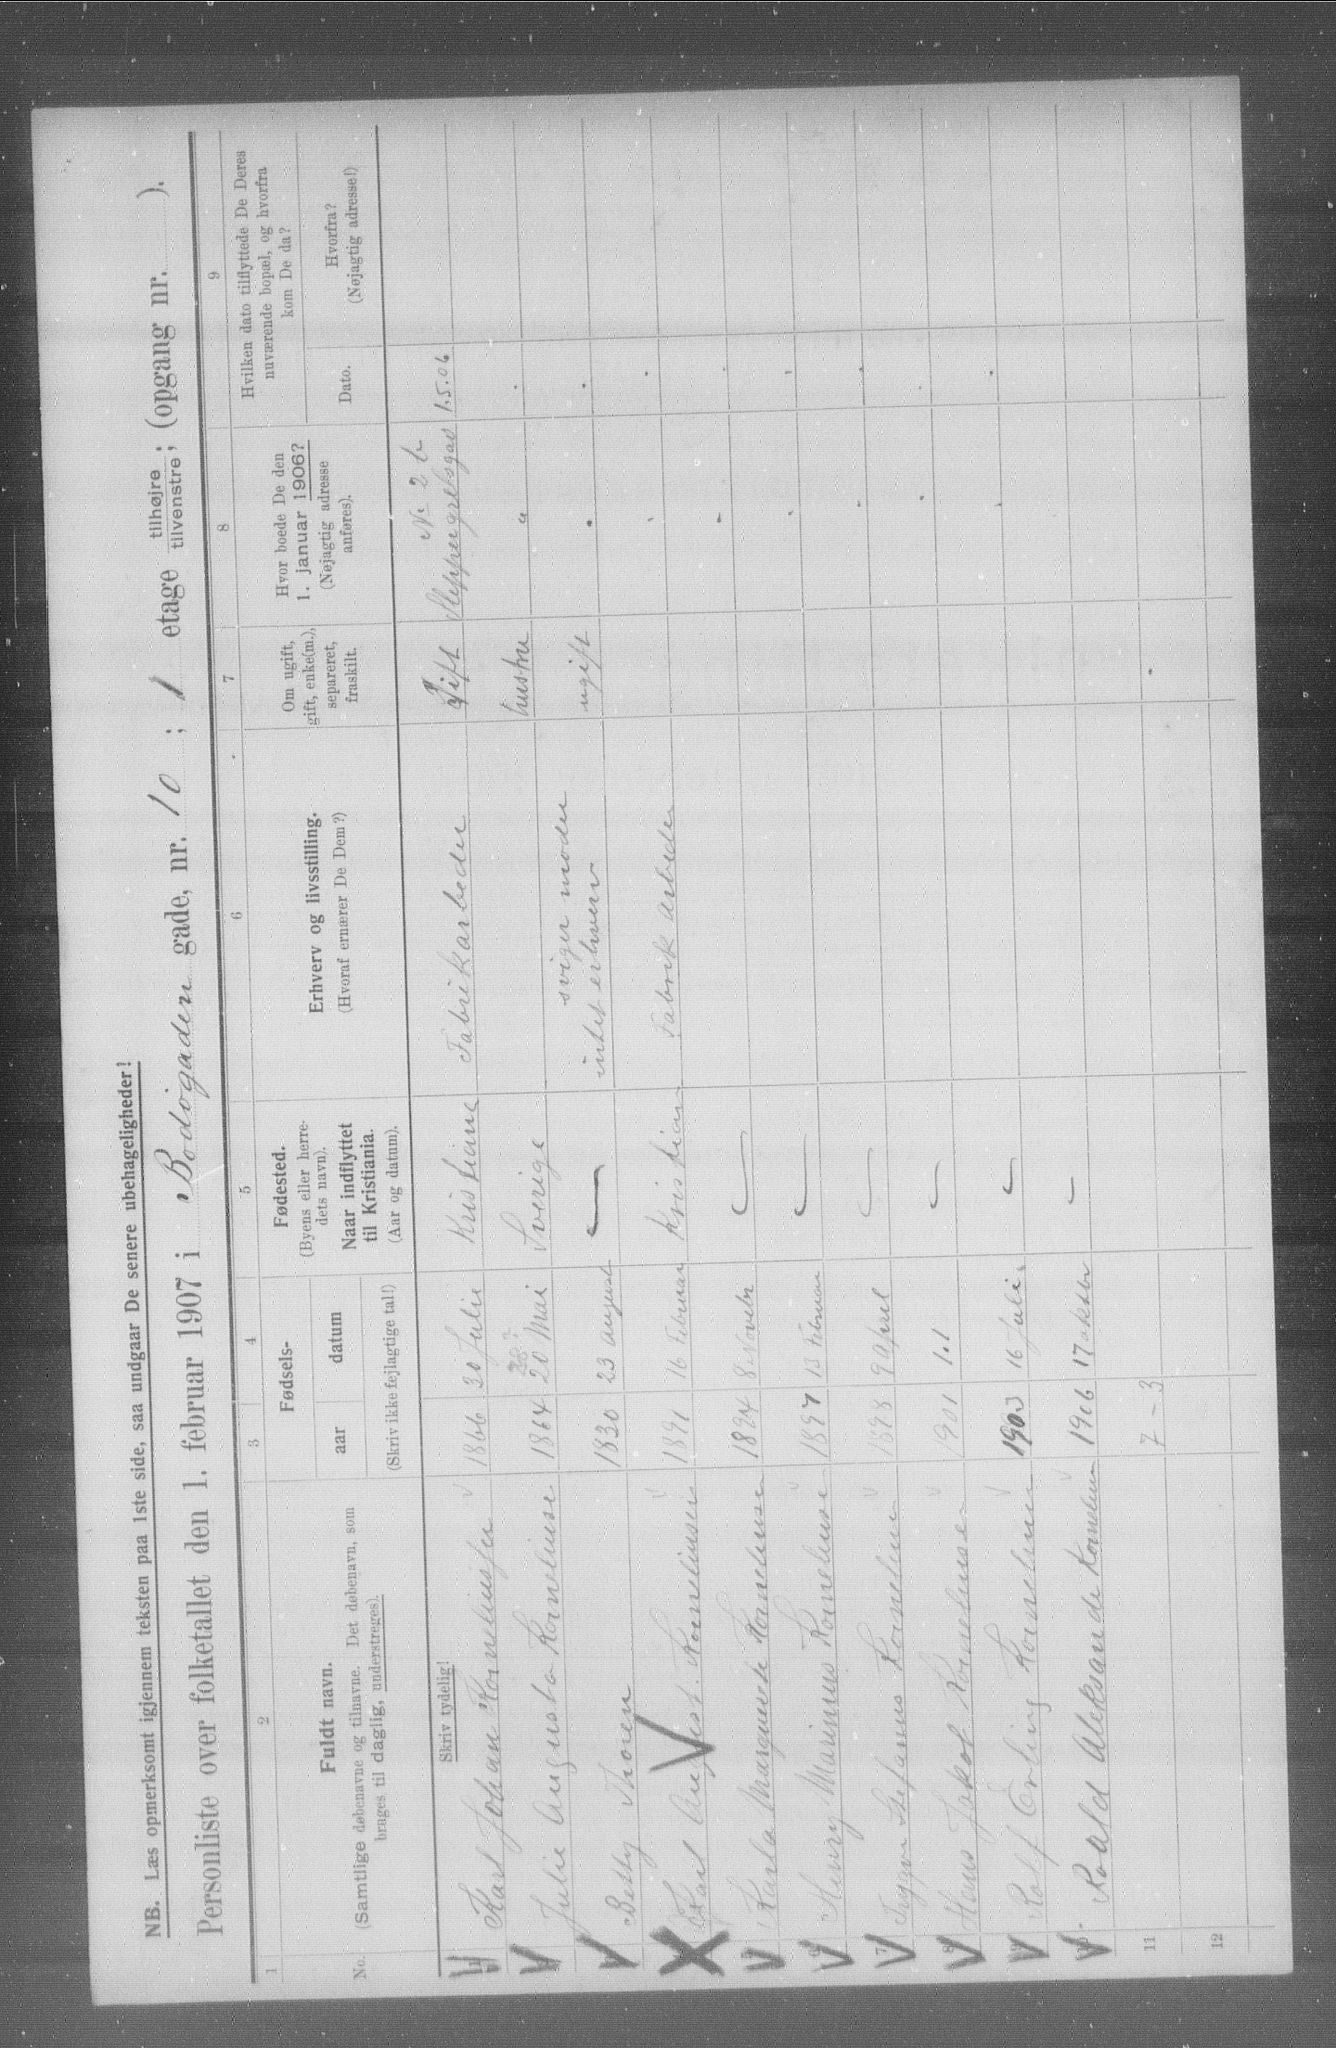 NB. Læs opmerksomt igjennem teksten paa 1ste side, saa undgaar De senere ubehageligheder!
Personliste over folketallet den 1. februar 1907 i Bodøgaden gade, nr. 10 ; 1 etage tilhøjre tilvenstre ; (opgang nr. ).
1 2 3 4 5 6 7 8 9
No. Fuldt navn.
(Samtlige døbenavne og tilnavne. Det døbenavn, som
bruges til daglig, understreges).
Fødsels-
aar datum
(Skriv ikke fejlagtige tal!)
Fødested.
(Byens eller herre-
dets navn).
Naar indflyttet
til Kristiania.
(Aar og datum).
Erhverv og livsstilling.
(Hvoraf ernærer De Dem?)
Om ugift,
gift, enke(m.),
separeret,
fraskilt.
Hvor boede De den
1. januar 1906?
(Nøjagtig adresse
anføres).
Hvilken dato tilflyttede De Deres
nuværende bopæl, og hvorfra
kom De da?
Dato.
Hvorfra?
(Nøjagtig adresse!)
Skriv tydelig!
Karl Johan Korneliussen 1866 30 Julie Kristiane Fabrikarbeder Gift No 2 b 1.5.06
Julie Augusta Korneliuse 1864 20 Mai Sverige hustru "
Betty Thoren 1830 23 august sviger moder intet erhverv ugift
Karl August. Korneliusen 1891 16 Februar Kristian Fabrik Arbeder
Karla Margrete Korneliuse 1894 8 Novebr
Henry Marinius Korneliuse 1897 13 Februar
7 Stefanus Korneliuse 1898 9 April
8 Hans Jakob Korneliusen 1901 1.1
Rolf Erling Korneliuse 1903 16 Juli
Roald Aleksander Korneliuse 1906 17 oktobr
11 7-3
12